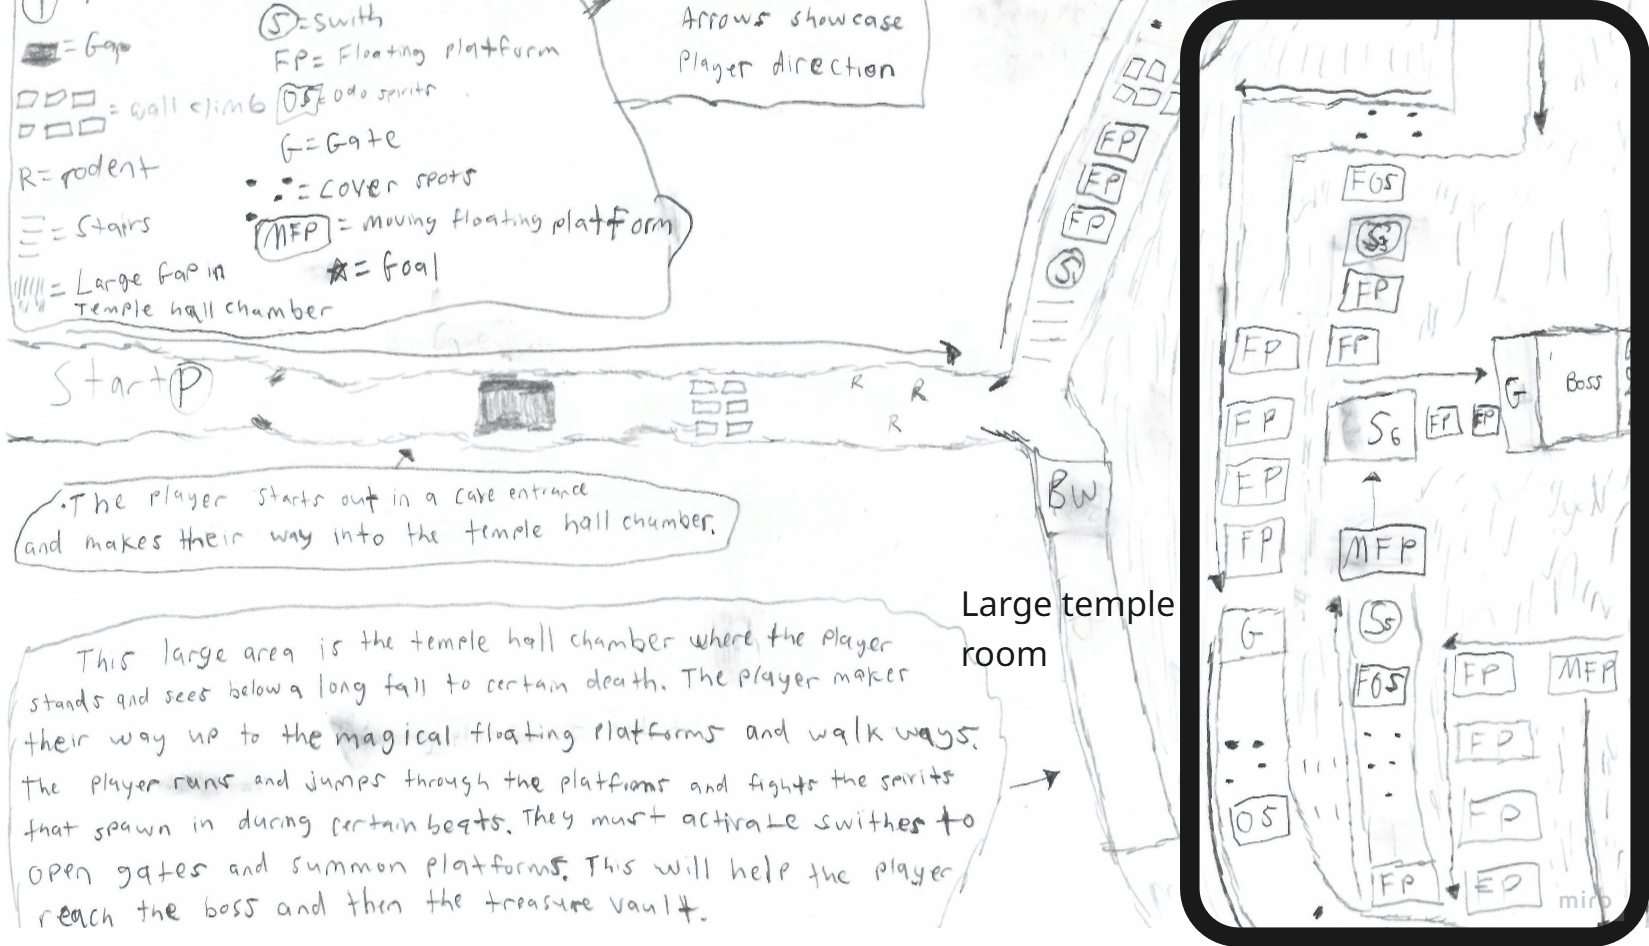 S = Swith
= Gap
FP = Floating platform
= wall climb
OS = Odo spirits
G = Gate
R = rodent
= cover spots
= Stairs
MFP = Moving floating platform
= Large Gap in
Temple hall chamber
= Goal
Arrows showcase
Player direction
FP
FP
FP
S
Start P
R
R
R
BW
.The player starts out in a cave entrance
and makes their way into the temple hall chamber.
Large temple
room
This large area is the temple hall chamber where the player
stands and sees below a long fall to certain death. The player makes
their way up to the magical floating platforms and walk ways.
The player runs and jumps through the platforms and fights the spirits
that spawn in during certain beats. They must activate swithes to
open gates and summon platforms. This will help the player
reach the boss and then the treasure vault.
FOS
FP
FP
FP
FP
S6
FP
FP
G
Boss
FP
FP
MFP
G
S5
FOS
FP
MFP
FP
OS
FP
FP
FP
miro